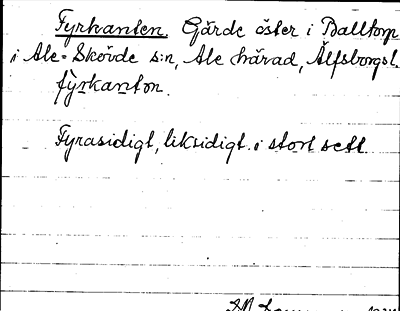 Fyrkanten. Gärde öster i Balltorp
i Ale-Skövde s:n, Ale härad, Älfsborgsl.
fyrkanton.
Fyrasidigt, liksidigt i stort sett